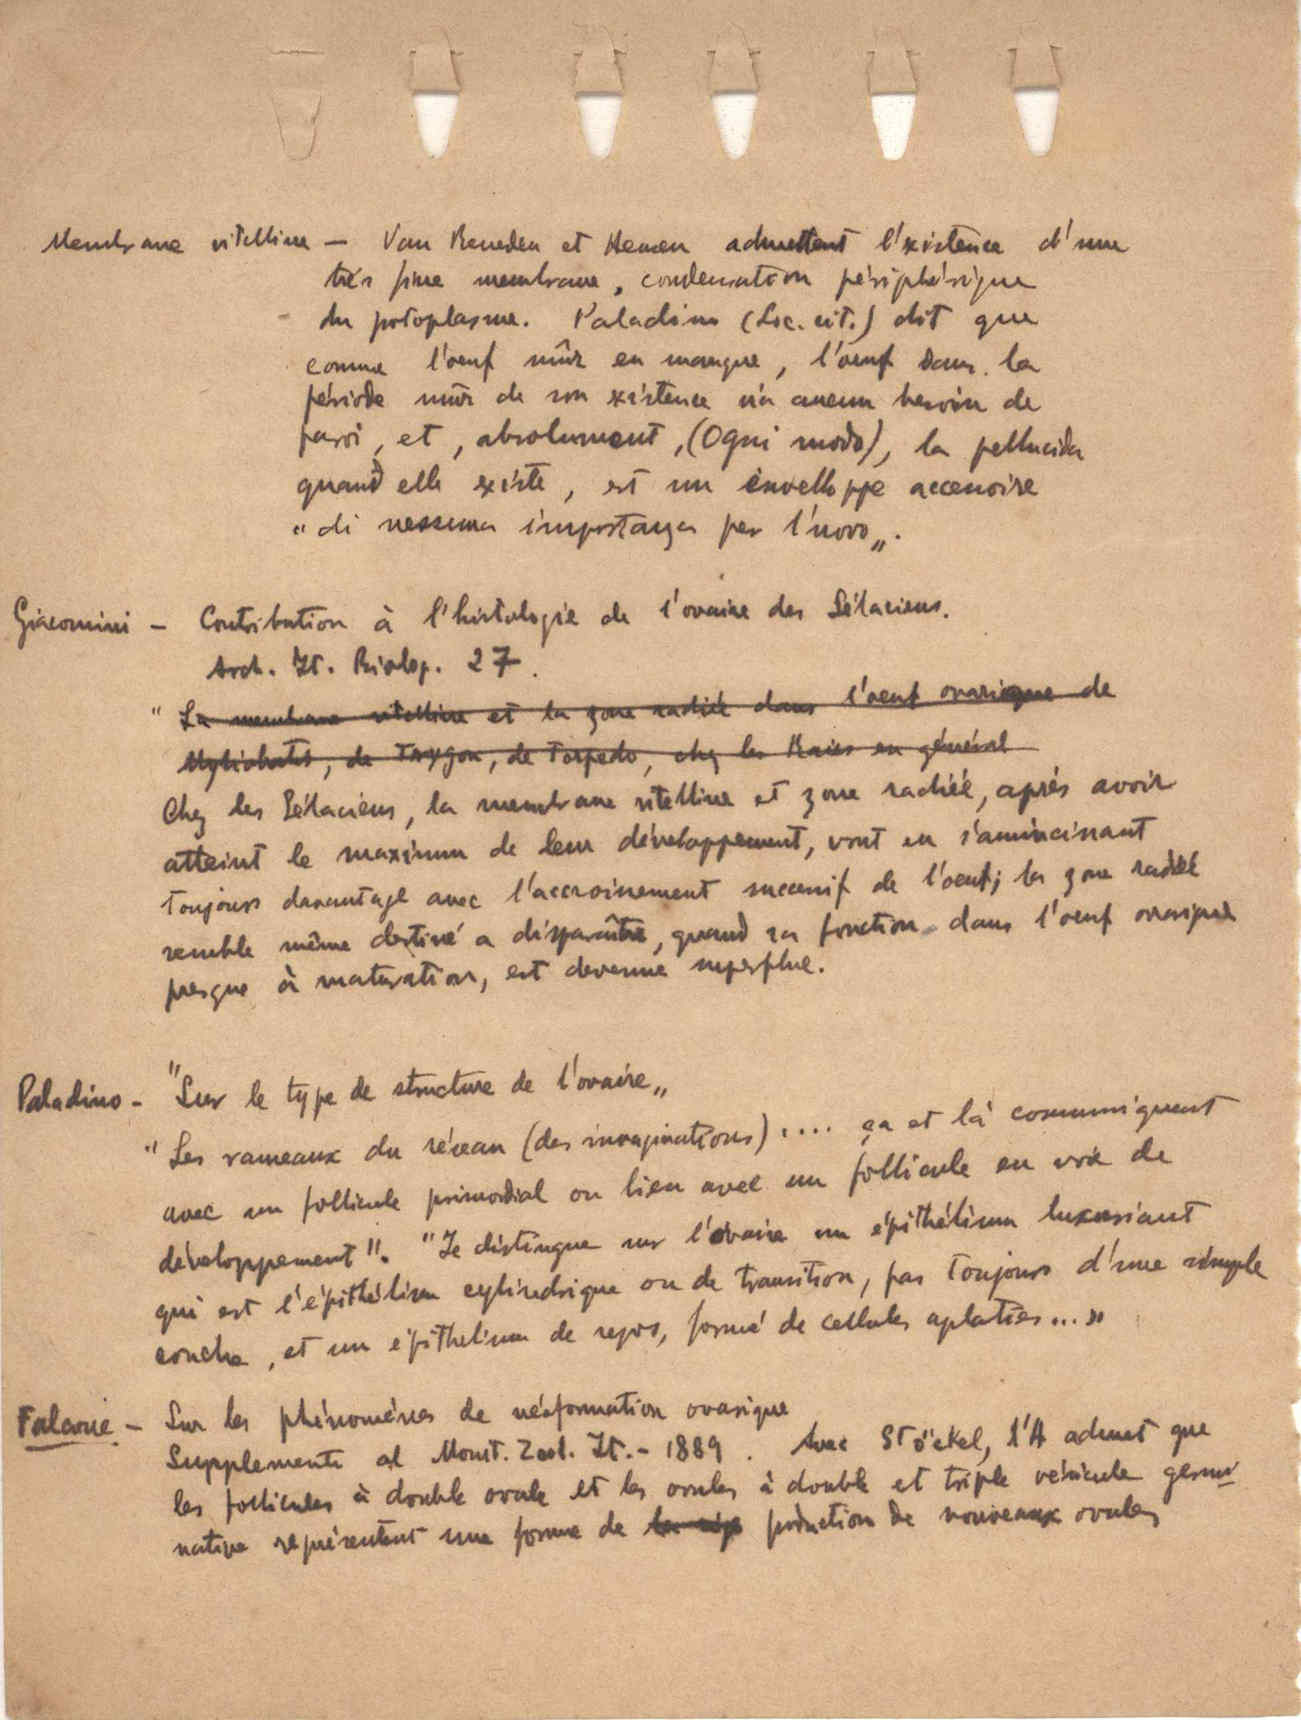 Membrane vitelline — Van Beneden et Hensen admettent l'existence d'une
très fine membrane, condensation périphérique
du protoplasme. Paladino (Loc. cit.) dit que
comme l'oeuf mûr en manque, l'oeuf dans la
période mûr de son existence n'a aucun besoin de
paroi, et, absolument, (Ogni modo), la pellucida
quand elle existe, est un envelloppe accessoire
"di nessuna importanza per l'uovo".
Giacomini — Contribution à l'histologie de l'ovaire des Sélaciens.
Arch. It. Biolog. 27.
" La membrane vitelline et la zone radiée dans l'oeuf ovarique de
Myliobatis, de Trygon, de Torpedo, chez les Raies en général
Chez les Sélaciens, la membrane vitelline et zone radiée, après avoir
atteint le maximum de leur développement, vont en s'amincissant
toujours davantage avec l'accroissement successif de l'oeuf; la zone radiée
semble même destiné a disparaître, quand sa fonction dans l'oeuf ovarique
presque à maturation, est devenue superflue.
Paladino - "Sur le type de structure de l'ovaire"
"Les rameaux du réseau (des invaginations) .... ça et là communiquent
avec un follicule primordial ou bien avec un follicule en voie de
développement". "Je distingue sur l'ovaire un épithélium luxuriant
qui est l'épithélium cylindrique ou de transition, pas toujours d'une simple
couche, et un épithelium de repos, formé de cellules aplaties..."
Falcone - Sur les phénomènes de néoformation ovarique
Supplemento al Monit. Zool. It. - 1889. Avec Stöckel, l'A admet que
les follicules à double ovule et les ovules à double et triple vésicule germi
native représentent une forme de production de nouveaux ovules